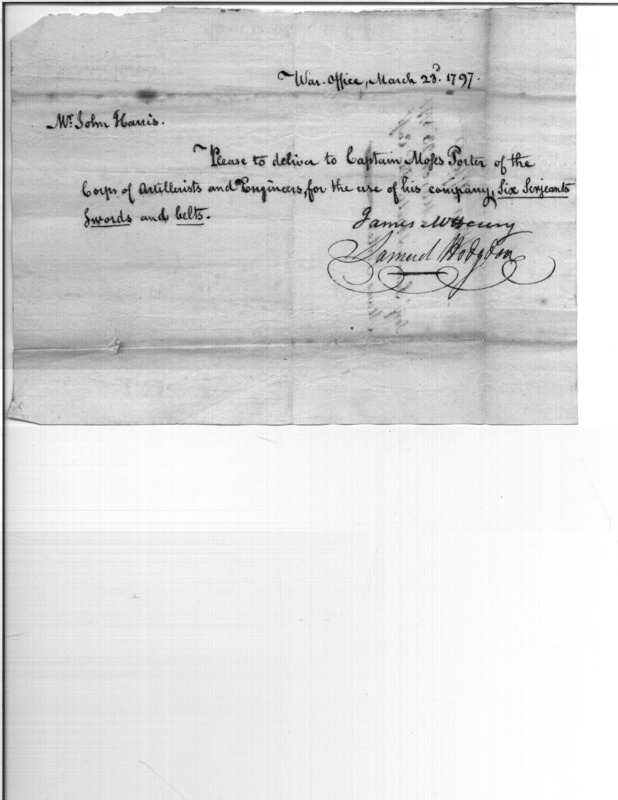 War-Office, March 23d. 1797.
Mr. John Harris.
Please to deliver to Captain Moses Porter of the
Corps of Artillerists and Engineers, for the use of his company, Six Serjeants
Swords and belts.
James McHenry
Samuel Hodgdon